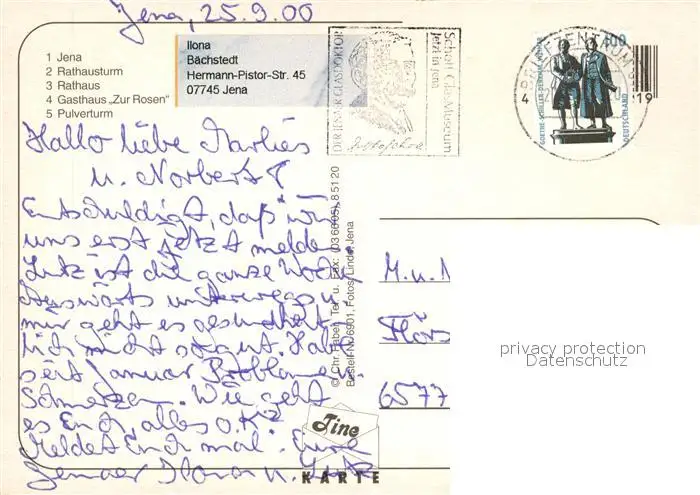 Jena, 25.9.00
1 Jena
2 Rathausturm
3 Rathaus
4 Gasthaus „Zur Rosen"
5 Pulverturm
Ilona
Bächstedt
Hermann-Pistor-Str. 45
07745 Jena
DER JENAER GLASDOKTOR
Schott GlasMuseum
Jetzt in Jena
BRIEFZENTRUM
4
100
GOETHE-SCHILLER-DENKMAL WEIMAR
DEUTSCHLAND
19
Hallo liebe Marlies
u. Norbert!
Entschuldigt, daß wir
uns erst jetzt melden.
Lutz ist die ganze Woche
auswärts unterwegs u.
mir geht es gesundheit-
lich nicht so gut. Habe
seit Januar Probleme u.
Schmerzen. Wie geht
es Euch, alles o.k.?
Meldet Euch mal. Eure
Jenaer Ilona u. Lutz
© Chr. Raben, Tel. u. Fax: (036605) 85120
Bestell-Nr. 6901, Fotos: Linde, Jena
M. u. N
Flörs
6577
privacy protection
Datenschutz
Tine
KARTE